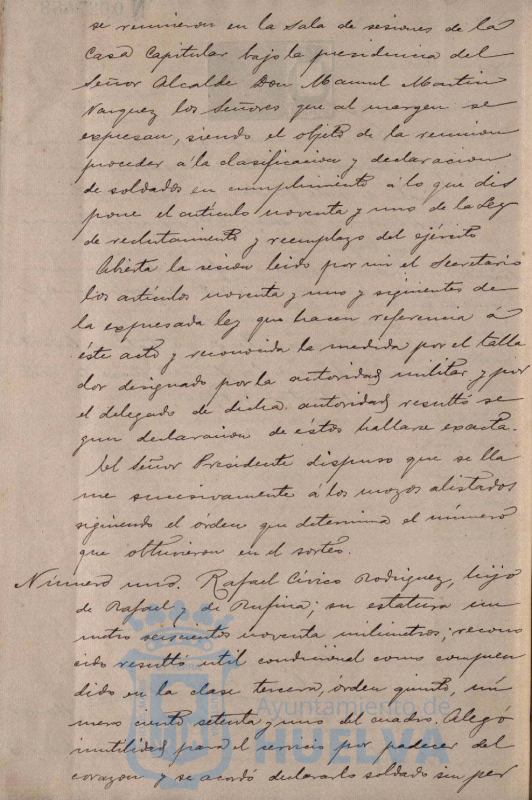 se reunieron en la Sala de sesiones de la
Casa Capitular bajo la presidencia del
Señor Alcalde Don Manuel Martin
Vazquez los Señores que al margen se
expresan, siendo el objeto de la reunion
proceder á la clasificacion y declaracion
de soldados en cumplimiento á lo que dis
pone el artículo noventa y uno de la Ley
de reclutamiento y reemplazo del ejército
Abierta la sesion leido por mi el Secretario
los artículos noventa y uno y siguientes de
la expresada ley que hacen referencia á
éste acto y reconocida la medida por el talla
dor designado por la autoridad militar y por
el delegado de dicha autoridad resultó se
gun declaracion de éstos hallarse exacta.
El Señor Presidente dispuso que se lla
me sucesivamente á los mozos alistados
siguiendo el órden que determina el número
que obtuvieron en el sorteo.
Número uno. Rafael Cívico Rodriguez, hijo
de Rafael y de Rufina; su estatura un
metro seiscientos noventa milimetros; recono
cido resultó util condicional como compren
dido en la clase tercera, órden quinto, nú
mero ciento setenta y uno del cuadro. Alegó
inutilidad para el servicio por padecer del
corazon y se acordó declararlo soldado sin per
Ayuntamiento de
HUELVA